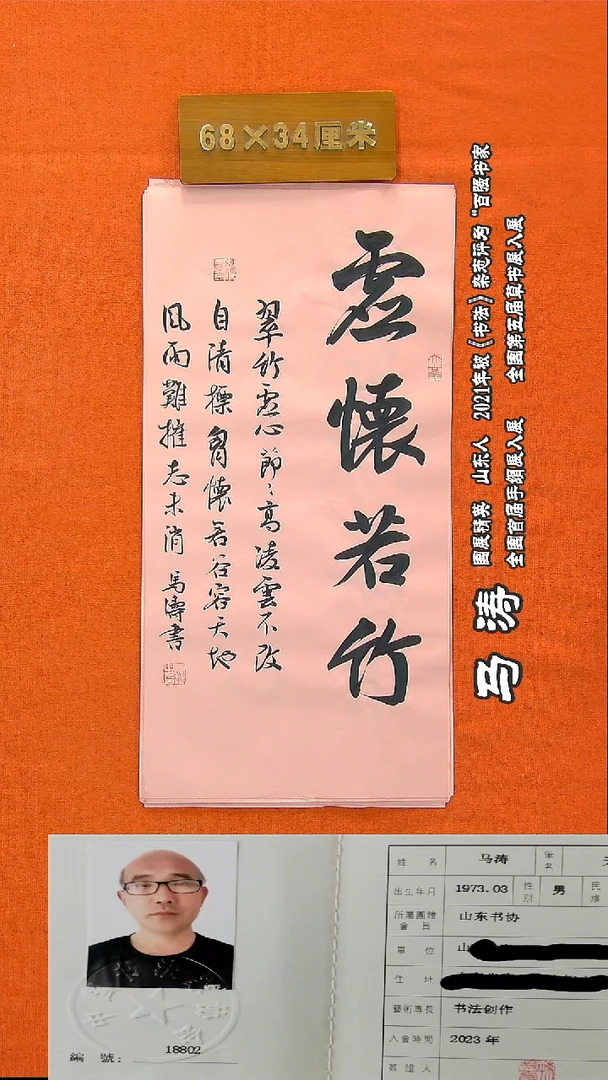 68×34厘米
虛懷若竹
翠竹虚心節〻高凌雲不改
自清標胷懷若谷容天地
風雨難摧志未消 馬濤書
马涛
國展精英 山东人 2021年被《书法》杂志评为“百强书家
全國首届手卷展入展 全國第五届草书展入展
姓名 马涛 筆名
出生年月 1973.03 性别 男 民族
所屬團體會員 山东书协
單位 山
住址
藝術專長 书法创作
入會時間 2023年
簽證人
編號: 18802